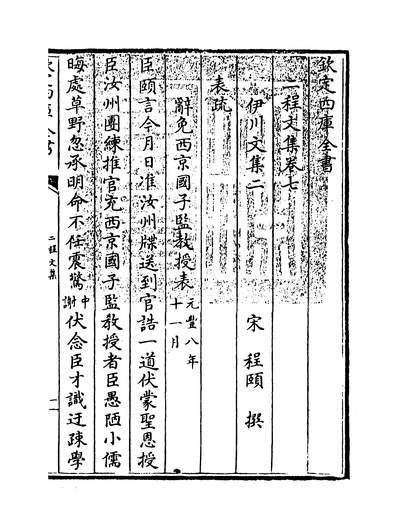 欽定四庫全書
二程文集卷七
伊川文集二
宋 程頤 撰
表疏
辭免西京國子監教授表 元豐八年十一月
臣頤言今月日准汝州牒送到官誥一道伏蒙聖恩授
臣汝州團練推官充西京國子監教授者臣愚陋小儒
晦處草野忽承明命不任震驚中謝伏念臣才識迂疎學
欽定四庫全書
二程文集
一